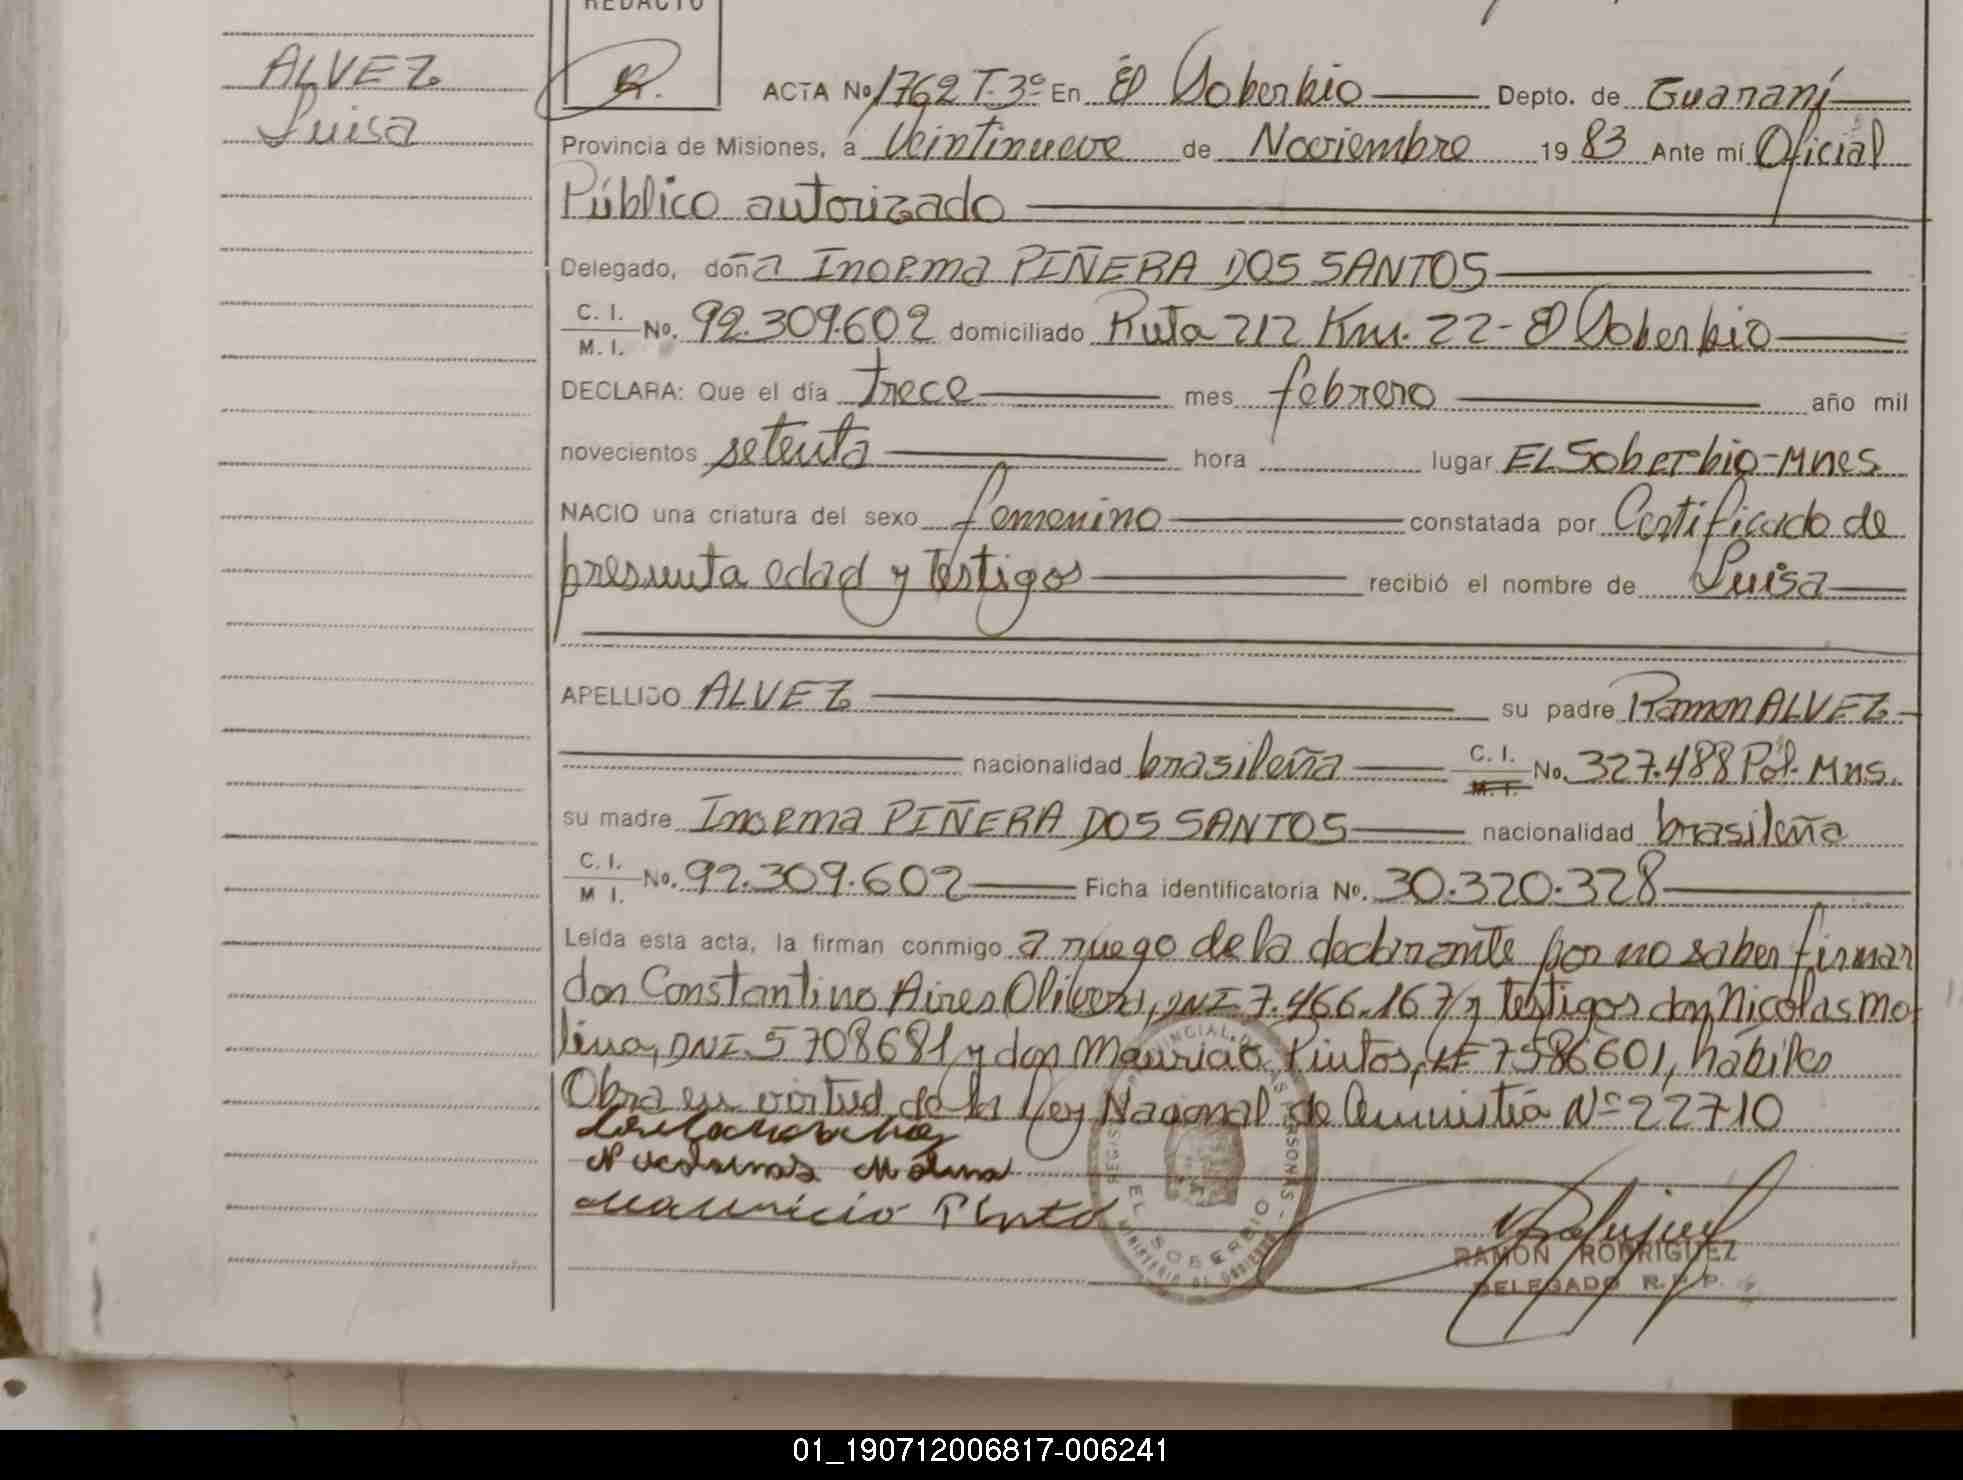 REDACTO
ALVEZ
Luisa
R.
ACTA Nº 1762 T. 3º En El Soberbio Depto. de Guaraní
Provincia de Misiones, a Veintinueve de Noviembre 19 83 Ante mí Oficial
Público autorizado
Delegado, doña Inorma PIÑERA DOS SANTOS
C. I.
M. I.
No. 92.309.602 domiciliado Ruta 212 Km. 22 - El Soberbio
DECLARA: Que el día trece mes febrero año mil
novecientos setenta hora lugar EL Soberbio - Mnes
NACIO una criatura del sexo femenino constatada por Certificado de
presunta edad y testigos recibió el nombre de Luisa
APELLIDO ALVEZ su padre Ramon ALVEZ
nacionalidad brasileña C. I. M. I. No. 327.488 Pol. Mns.
su madre Inorma PIÑERA DOS SANTOS nacionalidad brasileña
C. I.
M I.
No. 92.309.602 Ficha identificatoria Nº. 30.320.328
Leída esta acta, la firman conmigo a ruego de la declarante por no saber firmar
don Constantino Aires Olivera, DNI 7.466.167 y testigos don Nicolas Mo
lina, DNI 5708681 y don Mauricio Pintos, LE 7586601, hábiles
Obra en virtud de la Ley Nacional de Amnistía Nº 22710
Molina
Mauricio Pinto
EL SOBERBIO
RAMON RODRIGUEZ
DELEGADO R. P. P.
01_190712006817-006241